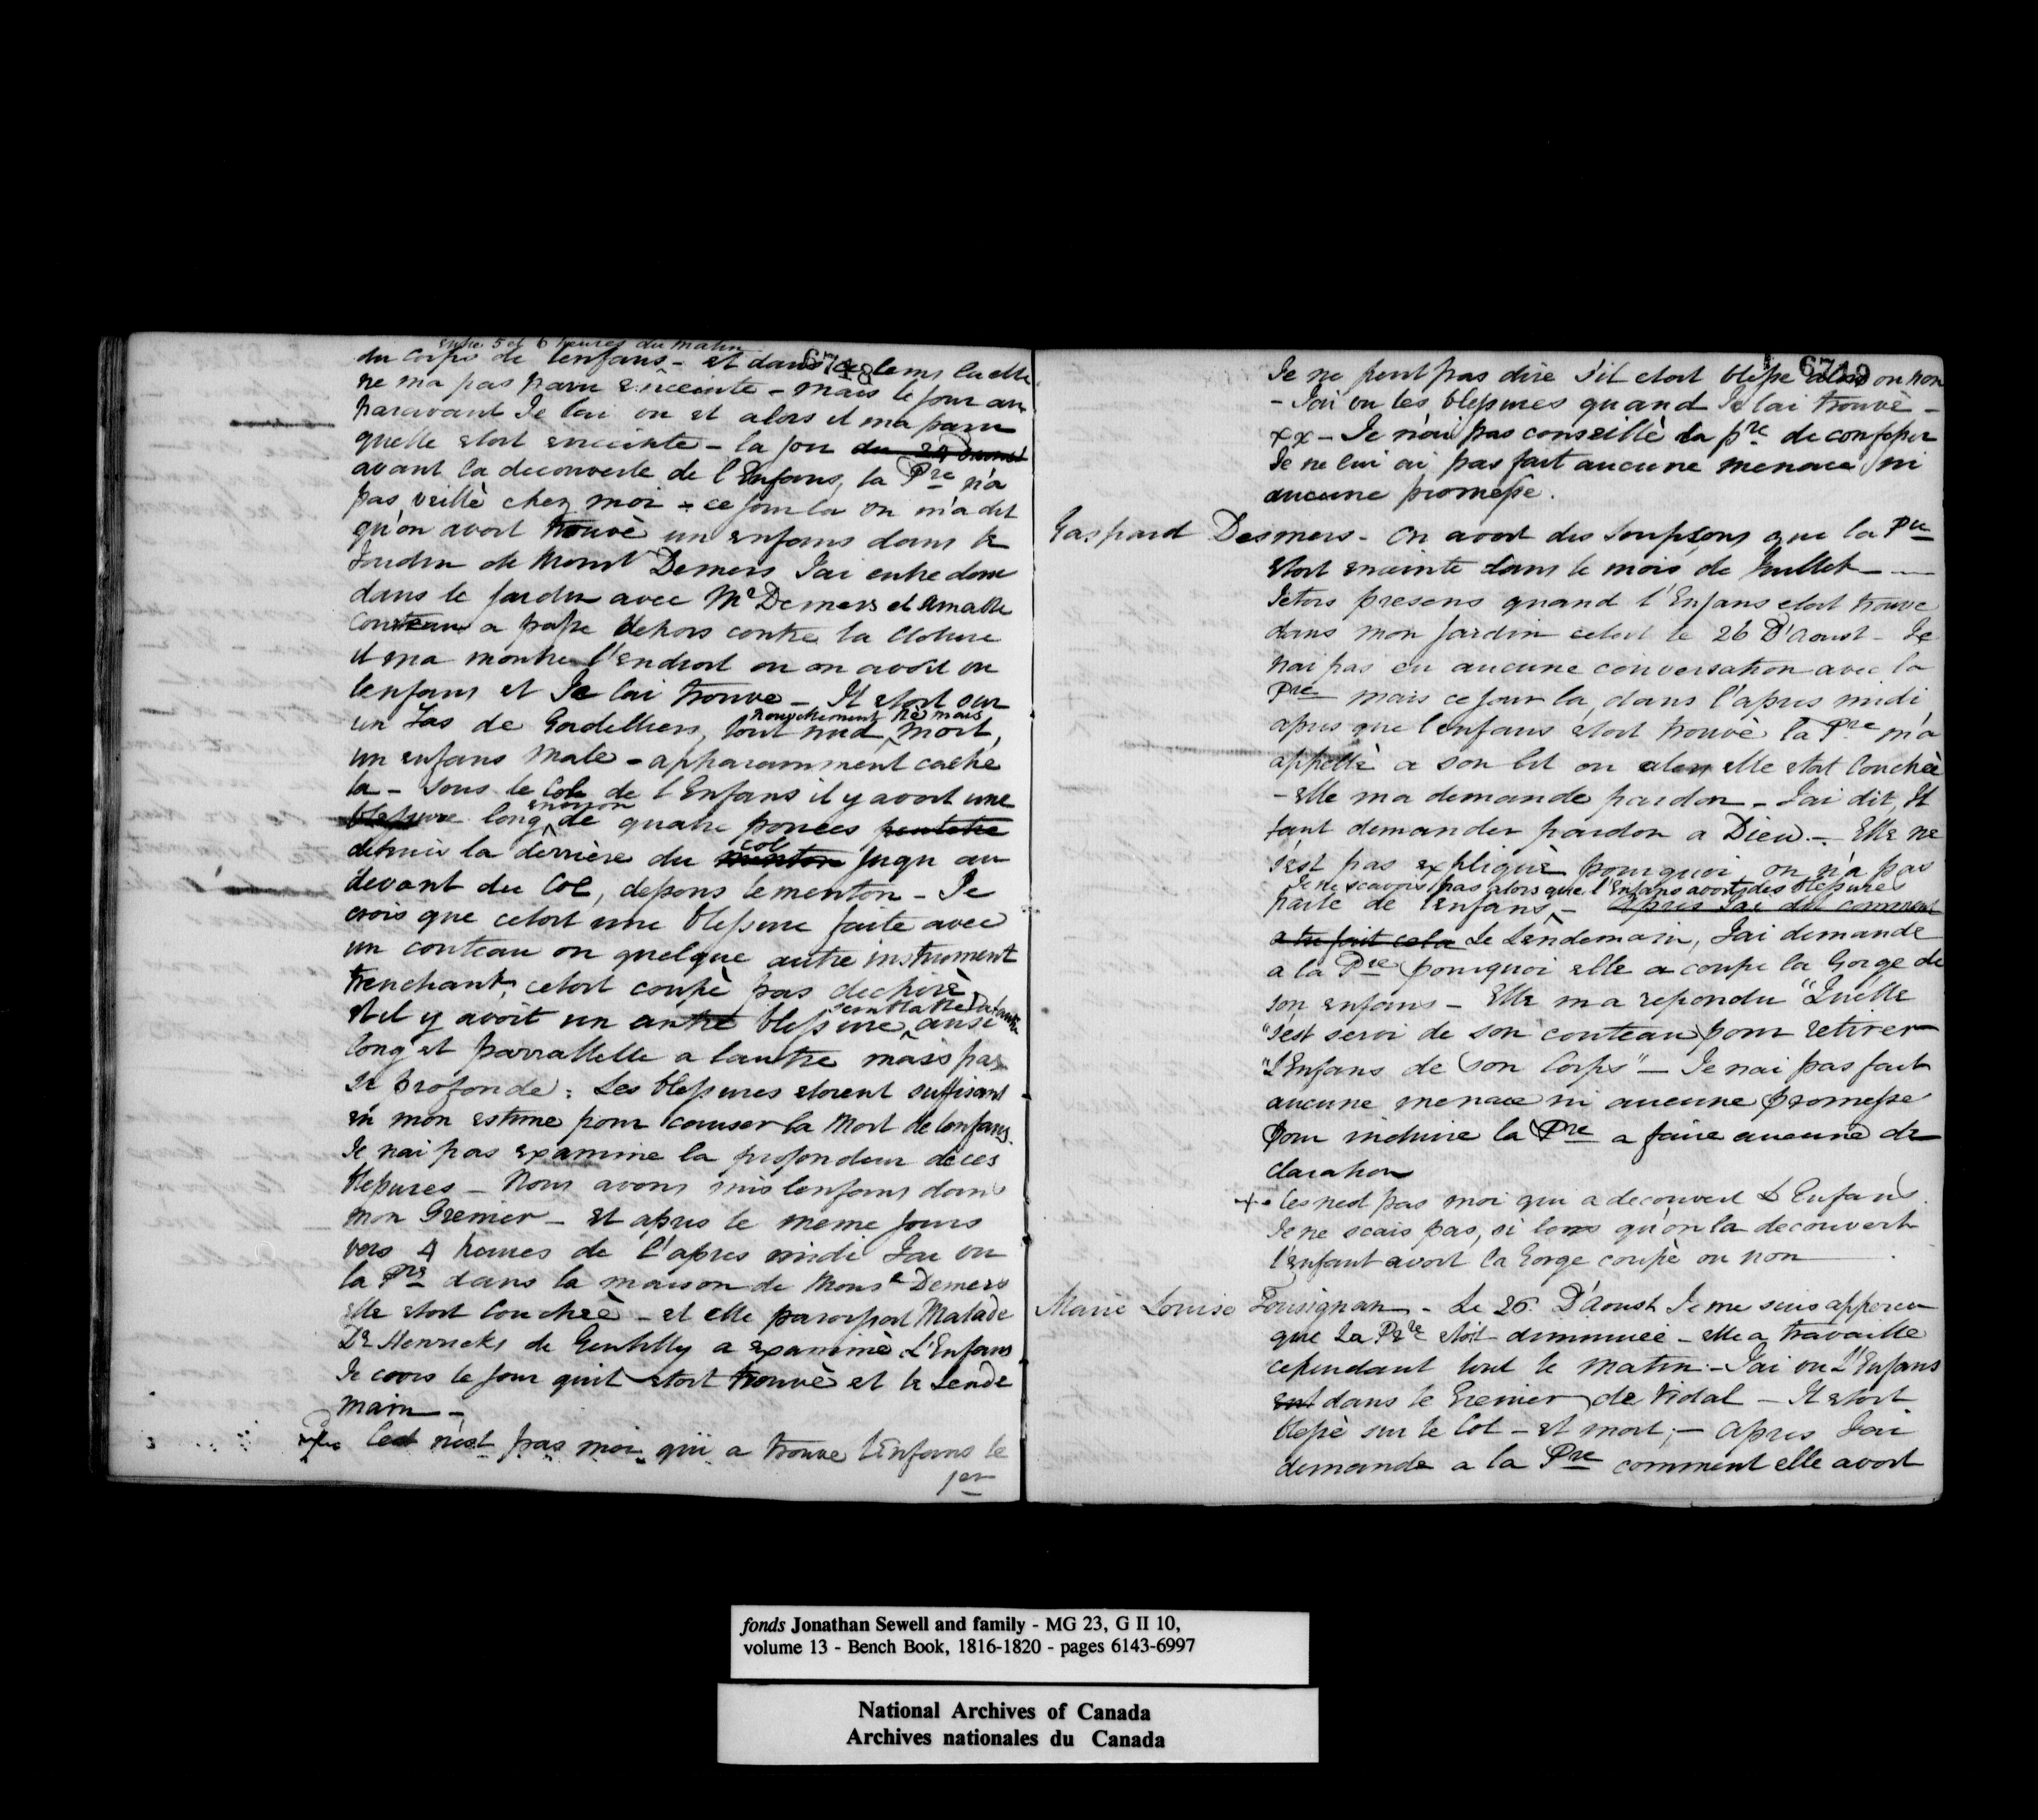 entre 5 et 6 heures du matin
6748
du corps de lenfans - et dans ce tems la elle
ne ma pas paru enceinte - mais le jour au
paravant Je lai vu et alors il ma paru
quelle etoit enceinte - la jour du
avant la decouverte de l'Enfans, la Pre n'a
pas veillè chez moi - ce jour la on m'a dit
qu'on avoit trouvè un enfans dans le
Jardin de Monsr Demers Jai entre donc
dans le jardin avec Mr Demers et Amable
Couteau a passe dehors contre la cloture
il ma montre l'endroit ou on avoit vu
lenfans et Je lai trouve - It etoit sur
nouvellement nè mais
un Tas de Gadelliers, tout nud, mort,
un enfans male - apparamment caché
la - sous le Col de l'Enfans il y avoit une
environ
blessure long de quatre pouces peutetre
col
depuis la derrière du menton Juqu au
devant du Col, dessous le menton - Je
crois que cetoit une blessure faite avec
un couteau ou quelque autre instrument
trenchant, cetoit coupè pas dechirè
semblable
et il y avoit un autre blessure, ausi
long et parrallelle a lautre mais pas
si profonde: Les blessures etoient suffisant
en mon estime pour causer la Mort de lenfans.
Je nai pas examine la profondeur de ces
blessures - Nous avons mis lenfans dans
mon Grenier - et apres le meme jours
vers 4 heures de l'apres midi Jai vu
la Pre dans la maison de Monsr Demers
elle etoit couchèe - et elle paroissoit Malade
Dr Henricks de Gentilly a examinè L'Enfans
Je crois le jour quil etoit trouvè et le Lende
main -
Cest n'est pas moi qui a trouve lEnfans le
1er
6749
Je ne peut pas dire s'il etoit blesse alors ou non
- Jai vu les blessures quand Je lai trouvè -
xx - Je n'ai pas conseillè la pre de confesser
Je ne lui ai pas fait aucune menace ni
aucune promesse.
Gaspard Desmers - On avoit des soupsons que la Pre
etoit enceinte dans le mois de Juillet -
Jetois presens quand l'Enfans etoit trouve
dans mon Jardin cetoit le 26 D'Aoust - Je
nai pas eu aucune conversation avec la
Pre mais ce jour la, dans l'apres midi
apres que lenfans etoit trouvè la Pre m'a
appellè a son lit ou alors elle etoit couchèe
- elle ma demande pardon - Jai dit, Il
faut demander pardon a Dieu - Elle ne
s'est pas expliquè pourquoi on n'a pas
Je ne scavois pas alors que l'Enfans avoit des blessures
parle de lenfans - Apres Jai dit comment
a tu fait cela Le Lendemain, Jai demande
a la Pre pourquoi elle a coupe la Gorge de
son enfans - Elle m a repondu "Quelle
"s'est servi de son couteau pour retirer
"l'Enfans de son Corps" - Je nai pas fait
aucune menace ni aucune promesse
pour induire la Pre a faire aucune de
claration
+ - Ces nest pas moi qui a decouvert L'Enfans.
Je ne scais pas, si lors qu'on la decouvert
l'enfant avoit la Gorge coupè ou non
Marie Louise Tousignan - Le 26. D'Aoust Je me suis apperceu
que La Pre etoit diminuèe - elle a travaille
cependant tout le matin - Jai vu L'Enfans
dans le Grenier de Vidal - It etoit
blessè sur le Col - et mort; - apres Jai
demande a la Pre comment elle avoit
fonds Jonathan Sewell and family - MG 23, G II 10,
volume 13 - Bench Book, 1816-1820 - pages 6143-6997
National Archives of Canada
Archives nationales du Canada